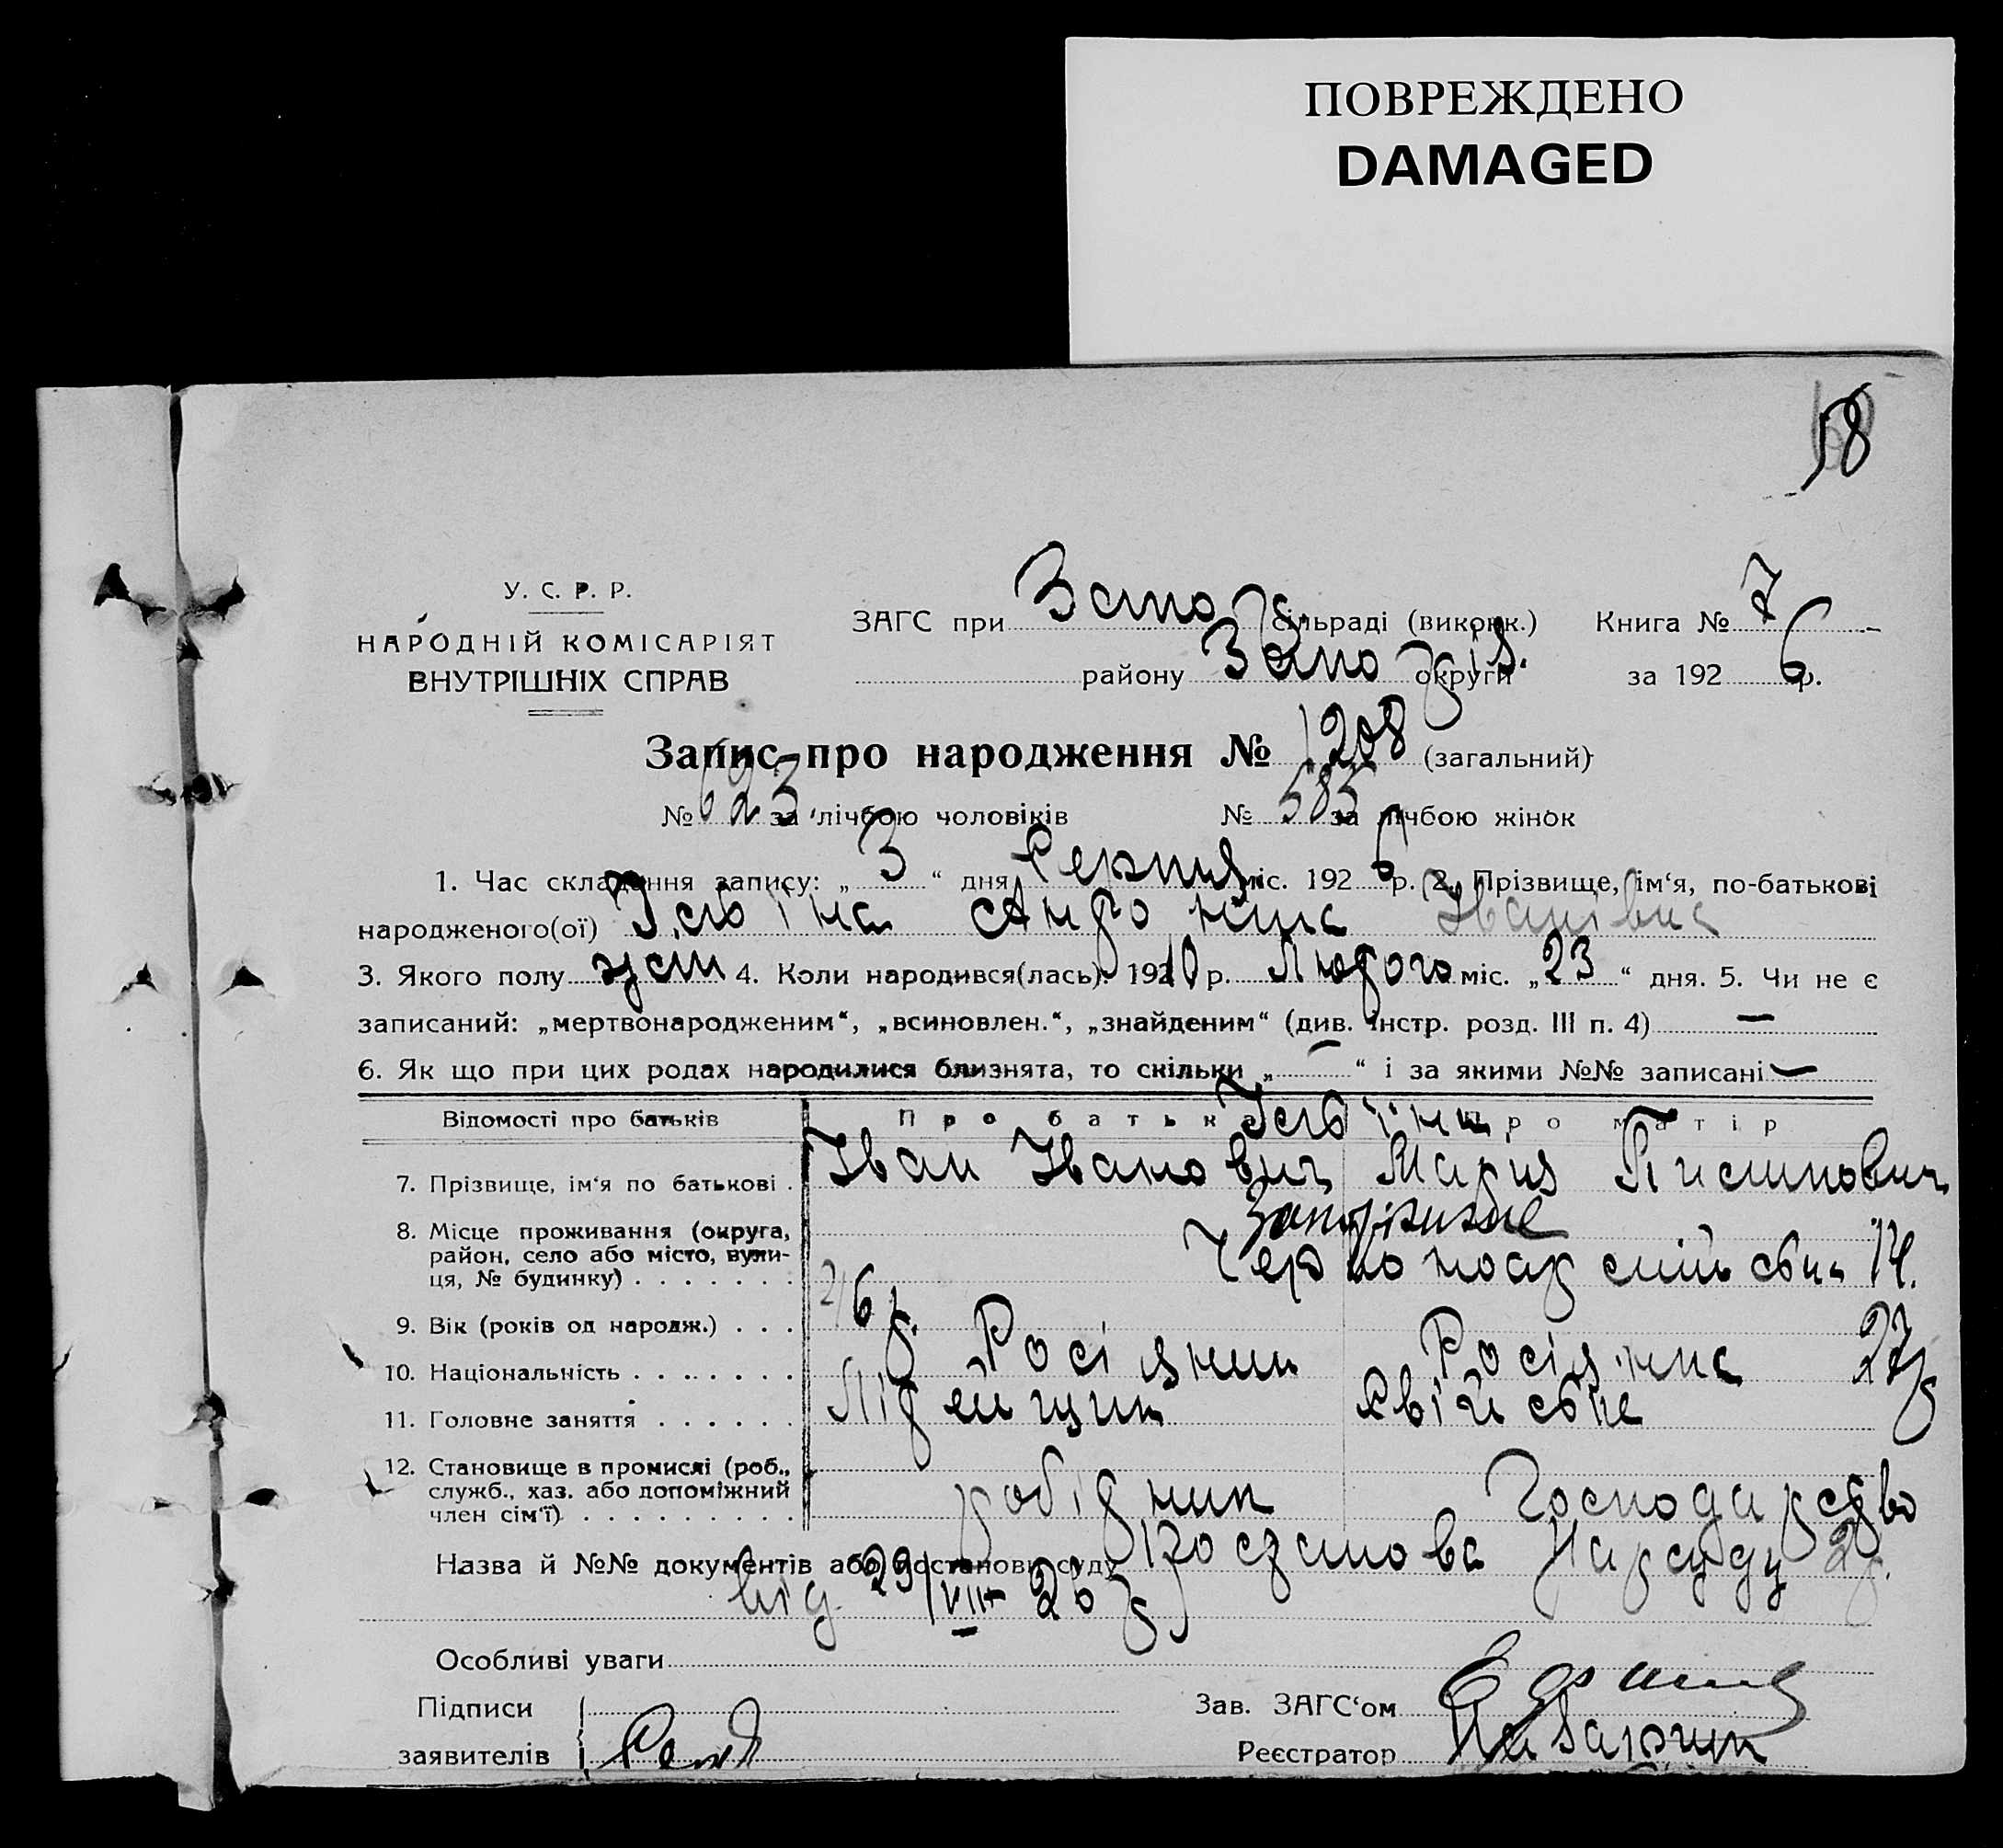 ПОВРЕЖДЕНО
DAMAGED
58
У. С. Р. Р.
НАРОДНІЙ КОМІСАРІЯТ
ВНУТРІШНІХ СПРАВ
ЗАГС при Запо сільраді (виконк.) Книга № 7
району Запо округи за 192 6 р.
Запис про народження № 1208 (загальний)
№ 623 за лічбою чоловіків № 585 за лічбою жінок
1. Час складення запису: „ 3 “ дня Серпня міс. 192 6 р. 2. Прізвище, ім‘я, по-батькові
народженого(ої) Іл'їна Антоніна Іванівна
3. Якого полу жін 4. Коли народився(лась): 192 р. Лютого міс. „ 23 “ дня. 5. Чи не є
записаний: „мертвонародженим“, „всиновлен.“, „знайденим“ (див. інстр. розд. III п. 4) —
6. Як що при цих родах народилися близнята, то скільки „ — “ і за якими №№ записані —
Відомості про батьків Про батька Про матір
7. Прізвище, ім‘я по батькові . Іван Іванович Мария
8. Місце проживання (округа,
район, село або місто, вули-
ця, № будинку) . . . . . . . 14.
9. Вік (років од народж.) . . . 26 р. 27 р
10. Національність . . . . . . . Росіянин Росіянка
11. Головне заняття . . . . . . Хвійське
12. Становище в промислі (роб.,
служб., хаз. або допоміжний
член сім‘ї) . . . . . . . . . робідник Господарство
Назва й №№ документів або постанови суду Постанова Нарсуду
від 29/VII 26 р
Особливі уваги
Підписи
заявителів
Зав. ЗАГС‘ом
Реєстратор